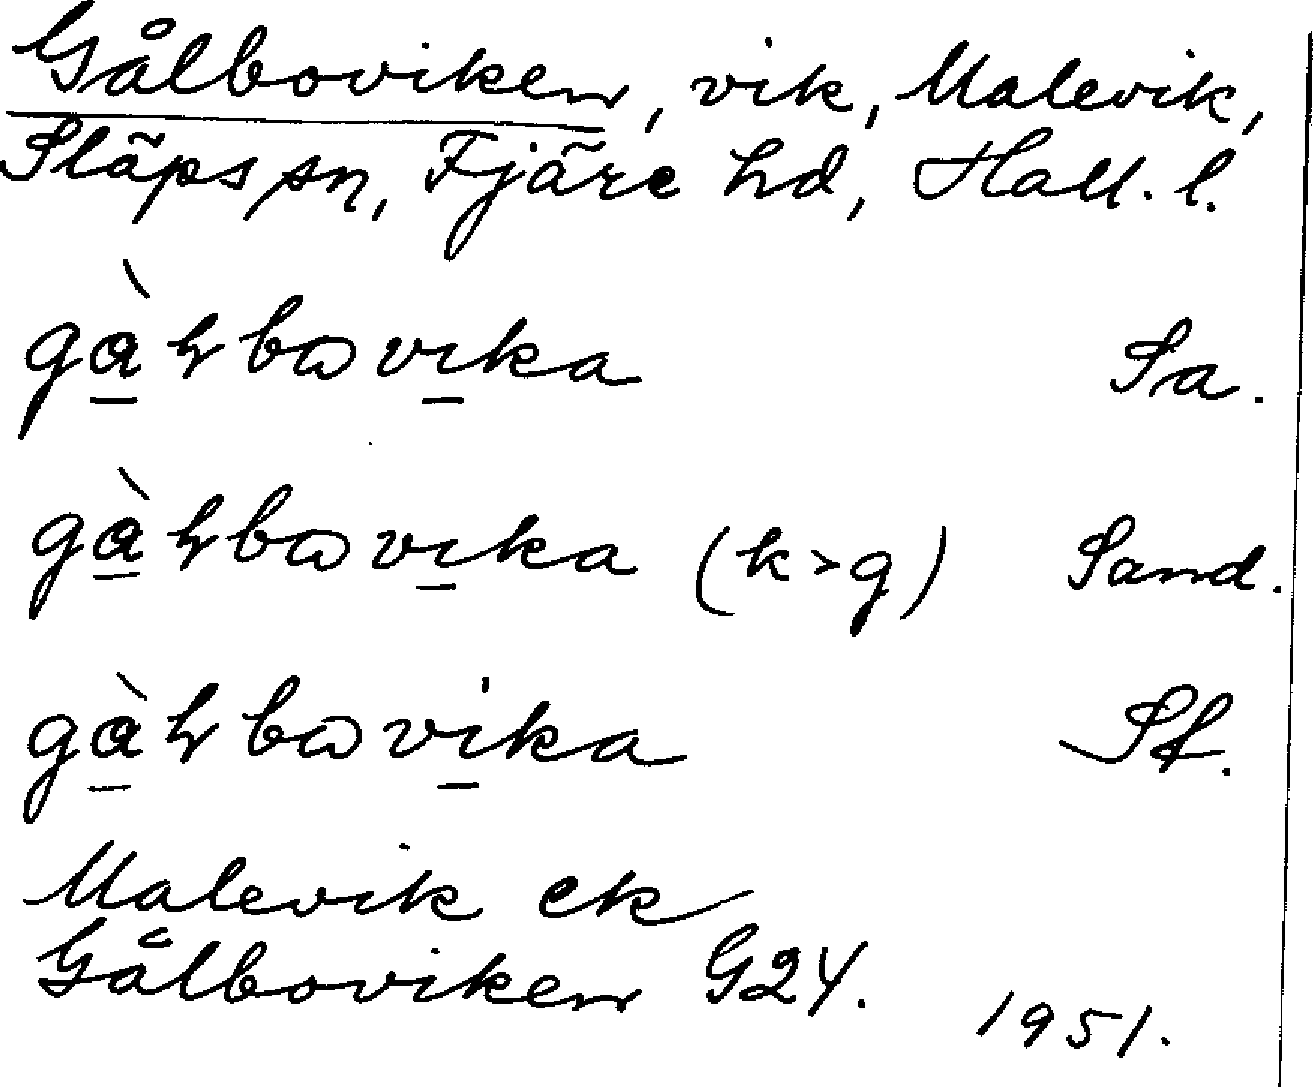 Gålboviken, vik, Malevik,
Släps sn, Fjäre hd, Hall. l.
gàɫbωvika Sa.
gàɫbωvika (k>g) Sand.
gàɫbωvika
Malevik ek
Gålboviken G24. 1951.